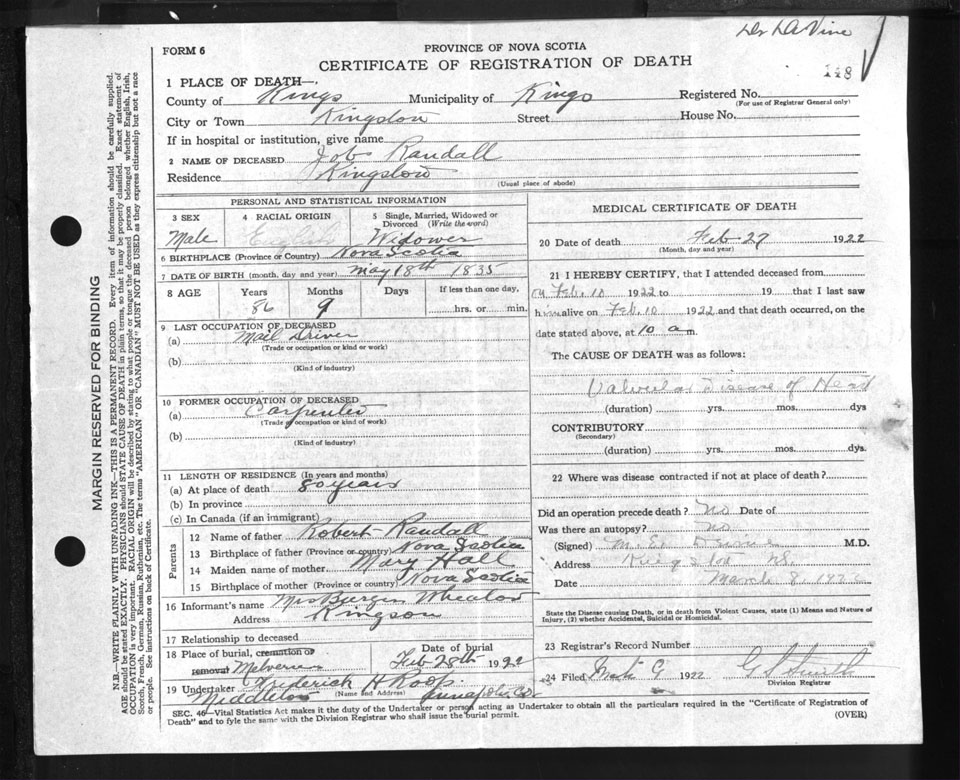 Dr DA Vine
148
FORM 6
PROVINCE OF NOVA SCOTIA
CERTIFICATE OF REGISTRATION OF DEATH
1 PLACE OF DEATH—
County of Kings Municipality of Kings Registered No.
(For use of Registrar General only)
City or Town Kingston Street House No.
If in hospital or institution, give name
2 NAME OF DECEASED Job Randall
Residence Kingston
(Usual place of abode)
PERSONAL AND STATISTICAL INFORMATION
3 SEX 4 RACIAL ORIGIN 5 Single, Married, Widowed or Divorced (Write the word)
Male English Widower
6 BIRTHPLACE (Province or Country) Nova Scotia
7 DATE OF BIRTH (month, day and year) May 18th 1835
8 AGE Years Months Days If less than one day,
86 9 hrs. or min.
9 LAST OCCUPATION OF DECEASED
(a) Mail Driver
(Trade or occupation or kind or work)
(b)
(Kind of industry)
10 FORMER OCCUPATION OF DECEASED
(a) Carpenter
(Trade or occupation or kind of work)
(b)
(Kind of industry)
11 LENGTH OF RESIDENCE (In years and months)
(a) At place of death 80 years
(b) In province
(c) In Canada (if an immigrant)
Parents
12 Name of father Robert Randall
13 Birthplace of father (Province or country) Nova Scotia
14 Maiden name of mother Mary Hall
15 Birthplace of mother (Province or country) Nova Scotia
16 Informant's name Mrs Burgin Wheator
Address Kingson
17 Relationship to deceased
18 Place of burial, cremation or removal Melvern Date of burial Feb 28th 1922
19 Undertaker Frederick H Roop
(Name and Address)
Middleton Annapolis Co.
MEDICAL CERTIFICATE OF DEATH
20 Date of death Feb 27 1922
(Month, day and year)
21 I HEREBY CERTIFY, that I attended deceased from
on Feb. 10 1922 to 19 that I last saw
h im alive on Feb. 10 1922 and that death occurred, on the
date stated above, at 10 a m.
The CAUSE OF DEATH was as follows:
Valvular Disease of Heart
(duration) yrs. mos. dys
CONTRIBUTORY
(Secondary)
(duration) yrs. mos. dys.
22 Where was disease contracted if not at place of death?
Did an operation precede death? No Date of
Was there an autopsy? No
(Signed) M.D.
Address Kingston NS.
Date March 8, 1922
State the Disease causing Death, or in death from Violent Causes, state (1) Means and Nature of
Injury, (2) whether Accidental, Suicidal or Homicidal.
23 Registrar's Record Number
24 Filed 1922
Division Registrar
SEC. 46—Vital Statistics Act makes it the duty of the Undertaker or person acting as Undertaker to obtain all the particulars required in the "Certificate of Registration of
Death" and to fyle the same with the Division Registrar who shall issue the burial permit. (OVER)
MARGIN RESERVED FOR BINDING
N.B.—WRITE PLAINLY WITH UNFADING INK—THIS IS A PERMANENT RECORD. Every item of information should be carefully supplied.
AGE should be stated EXACTLY. PHYSICIANS should STATE CAUSE OF DEATH in plain terms, so that it may be properly classified. Exact statement of
OCCUPATION is very important. RACIAL ORIGIN will be described by stating to what people or tongue the deceased person belonged whether English, Irish,
Scotch, French, German, Russian, Ruthenian, etc. The terms "AMERICAN" OR "CANADIAN" MUST NOT BE USED as they express citizenship but not a race
or people. See instructions on back of Certificate.